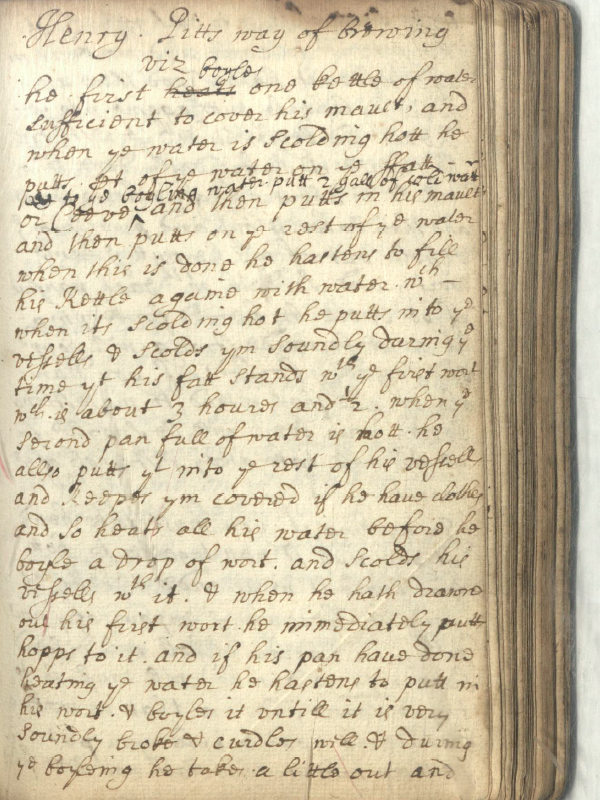 Henry. Pitts way of brewing
viz boyles
he first heats one kettle of water
sufficient to cover his mault, and
when ye water is scolding hott he
putts of ye water on ye ffatt
to ye boyling water putt 2 Gall of cold watr
or Ceeve, and then putts in his mault
and then putts on ye rest of ye water
when this is done he hastens to fill
his Kettle againe with water. wch
when its scolding hot he putts into ye
vessells & scolds ym soundly during ye
time yt his fatt stands wth ye first wort
wch. is about 3 houres and ½. when ye
second pan full of water is hott. he
allso putts yt into ye rest of his vessell
and Keepes ym covered if he have clothes
and so heats all his water before he
boyle a drop of wort. and scolds his
vessells wth it. & when he hath drawne
out his first wort. he immediately putt
hopps to it. and if his pan have done
heating ye water he hastens to putt in
his wort. & boyles it untill it is very
soundly broke & curdles well. & during
ye boyleing he takes a little out and